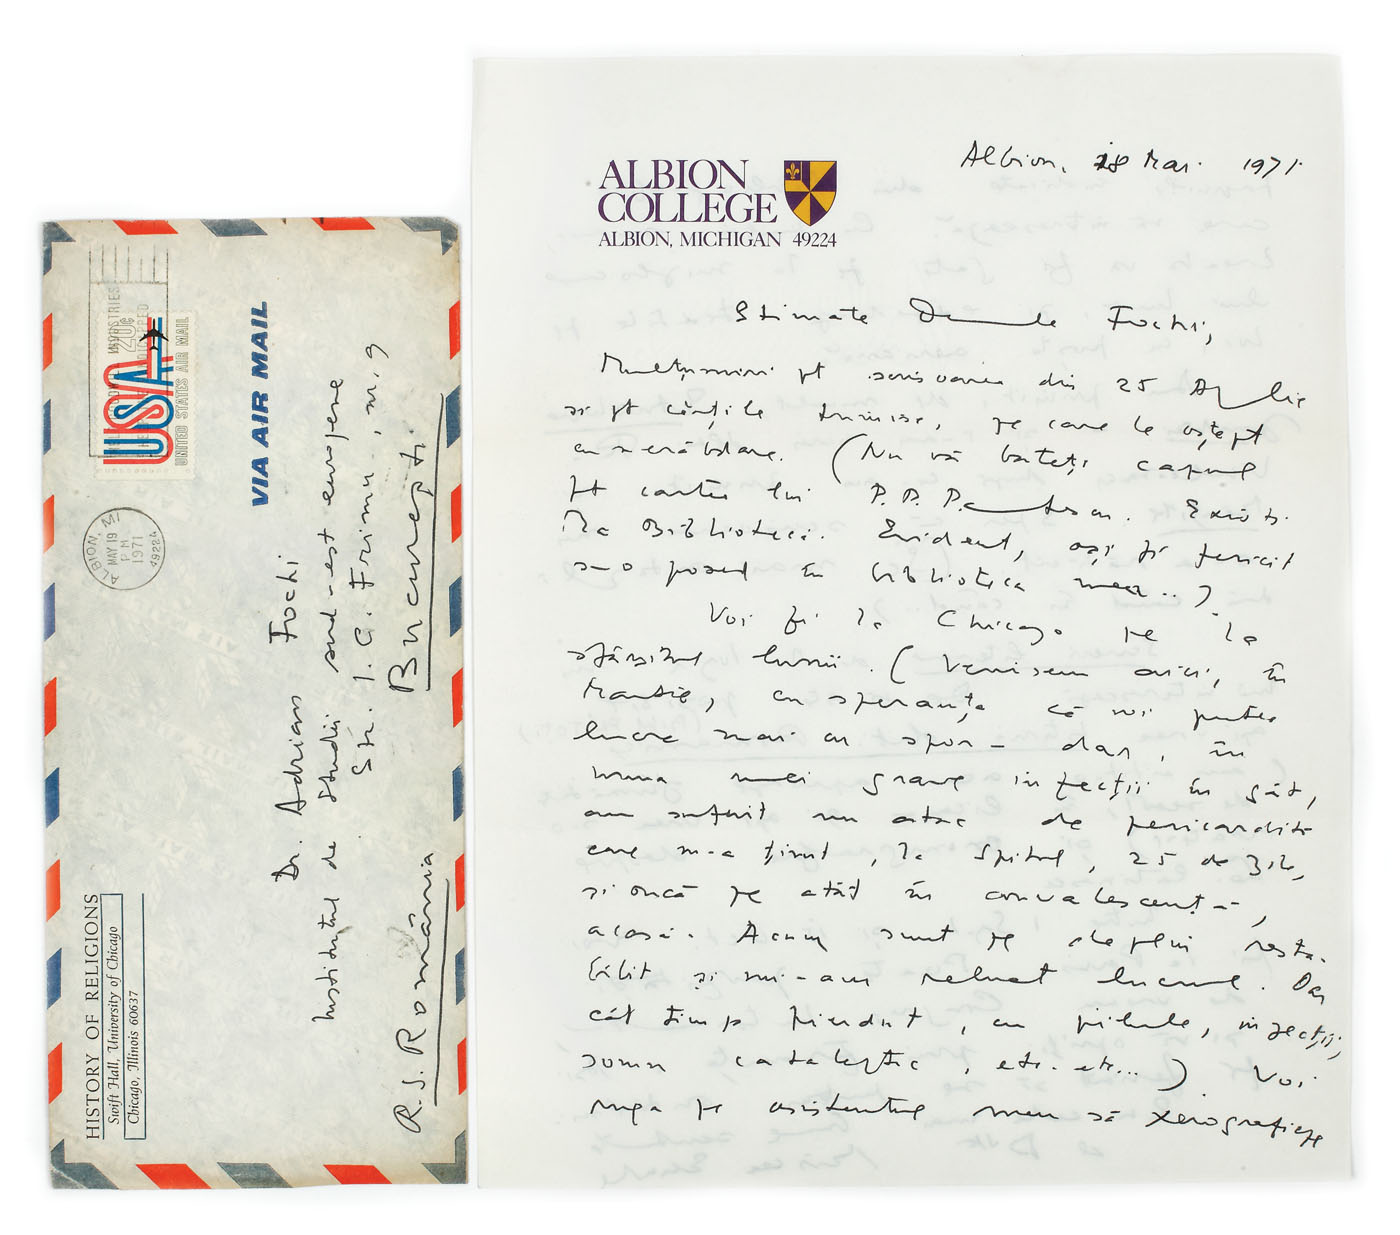 HISTORY OF RELIGIONS
Swift Hall, University of Chicago
Chicago, Illinois 60637
USA
20c
UNITED STATES AIR MAIL
ALBION, MI
MAY 19
P M
1971
49224
VIA AIR MAIL
Dr. Adrian Fochi
Institutul de Studii sud-est europene
Str. I. C. Frimu, nr. 9
București
R. S. România
ALBION
COLLEGE
ALBION, MICHIGAN 49224
Albion, 18 Mai 1971
Stimate Domnule Fochi,
Mulțumiri pt scrisoarea din 25 Aprilie
și pt cărțile trimise, pe care le aștept
cu nerăbdare. (Nu vă bateți capul
pt cartea lui P. P. Panaitescu. Există
la Bibliotecă. Evident, aș fi fericit
s-o posed în biblioteca mea..)
Voi fi la Chicago pe la
sfârșitul lunii. (Venisem aici, în
Martie, cu speranța că voi putea
lucra mai cu spor – dar, în
urma unei grave infecții în gât,
am suferit un atac de pericardită
care m-a ținut, la spital, 25 de zile,
și încă pe atât în convalescență,
acasă. Acum sunt pe deplin resta-
bilit și mi-am reluat lucrul. Dar
cât timp pierdut, cu pilule, injecții,
somn cataleptic, etc. etc...) Voi
ruga pe asistentul meu să xerografieze